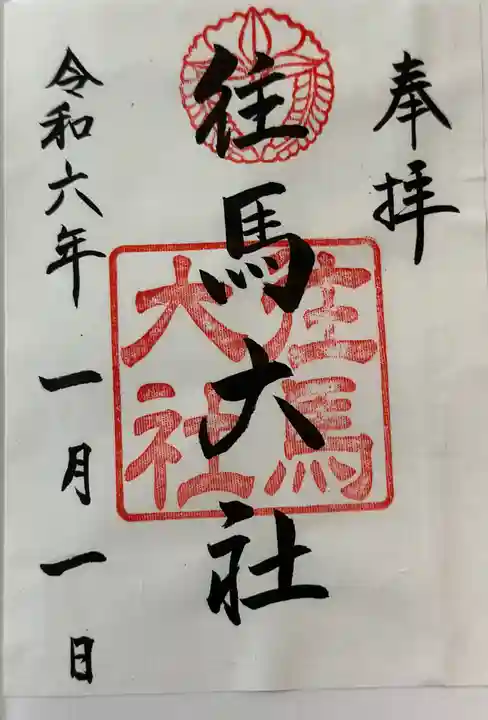 奉拝
往馬大社
往馬
大社
令和六年一月一日